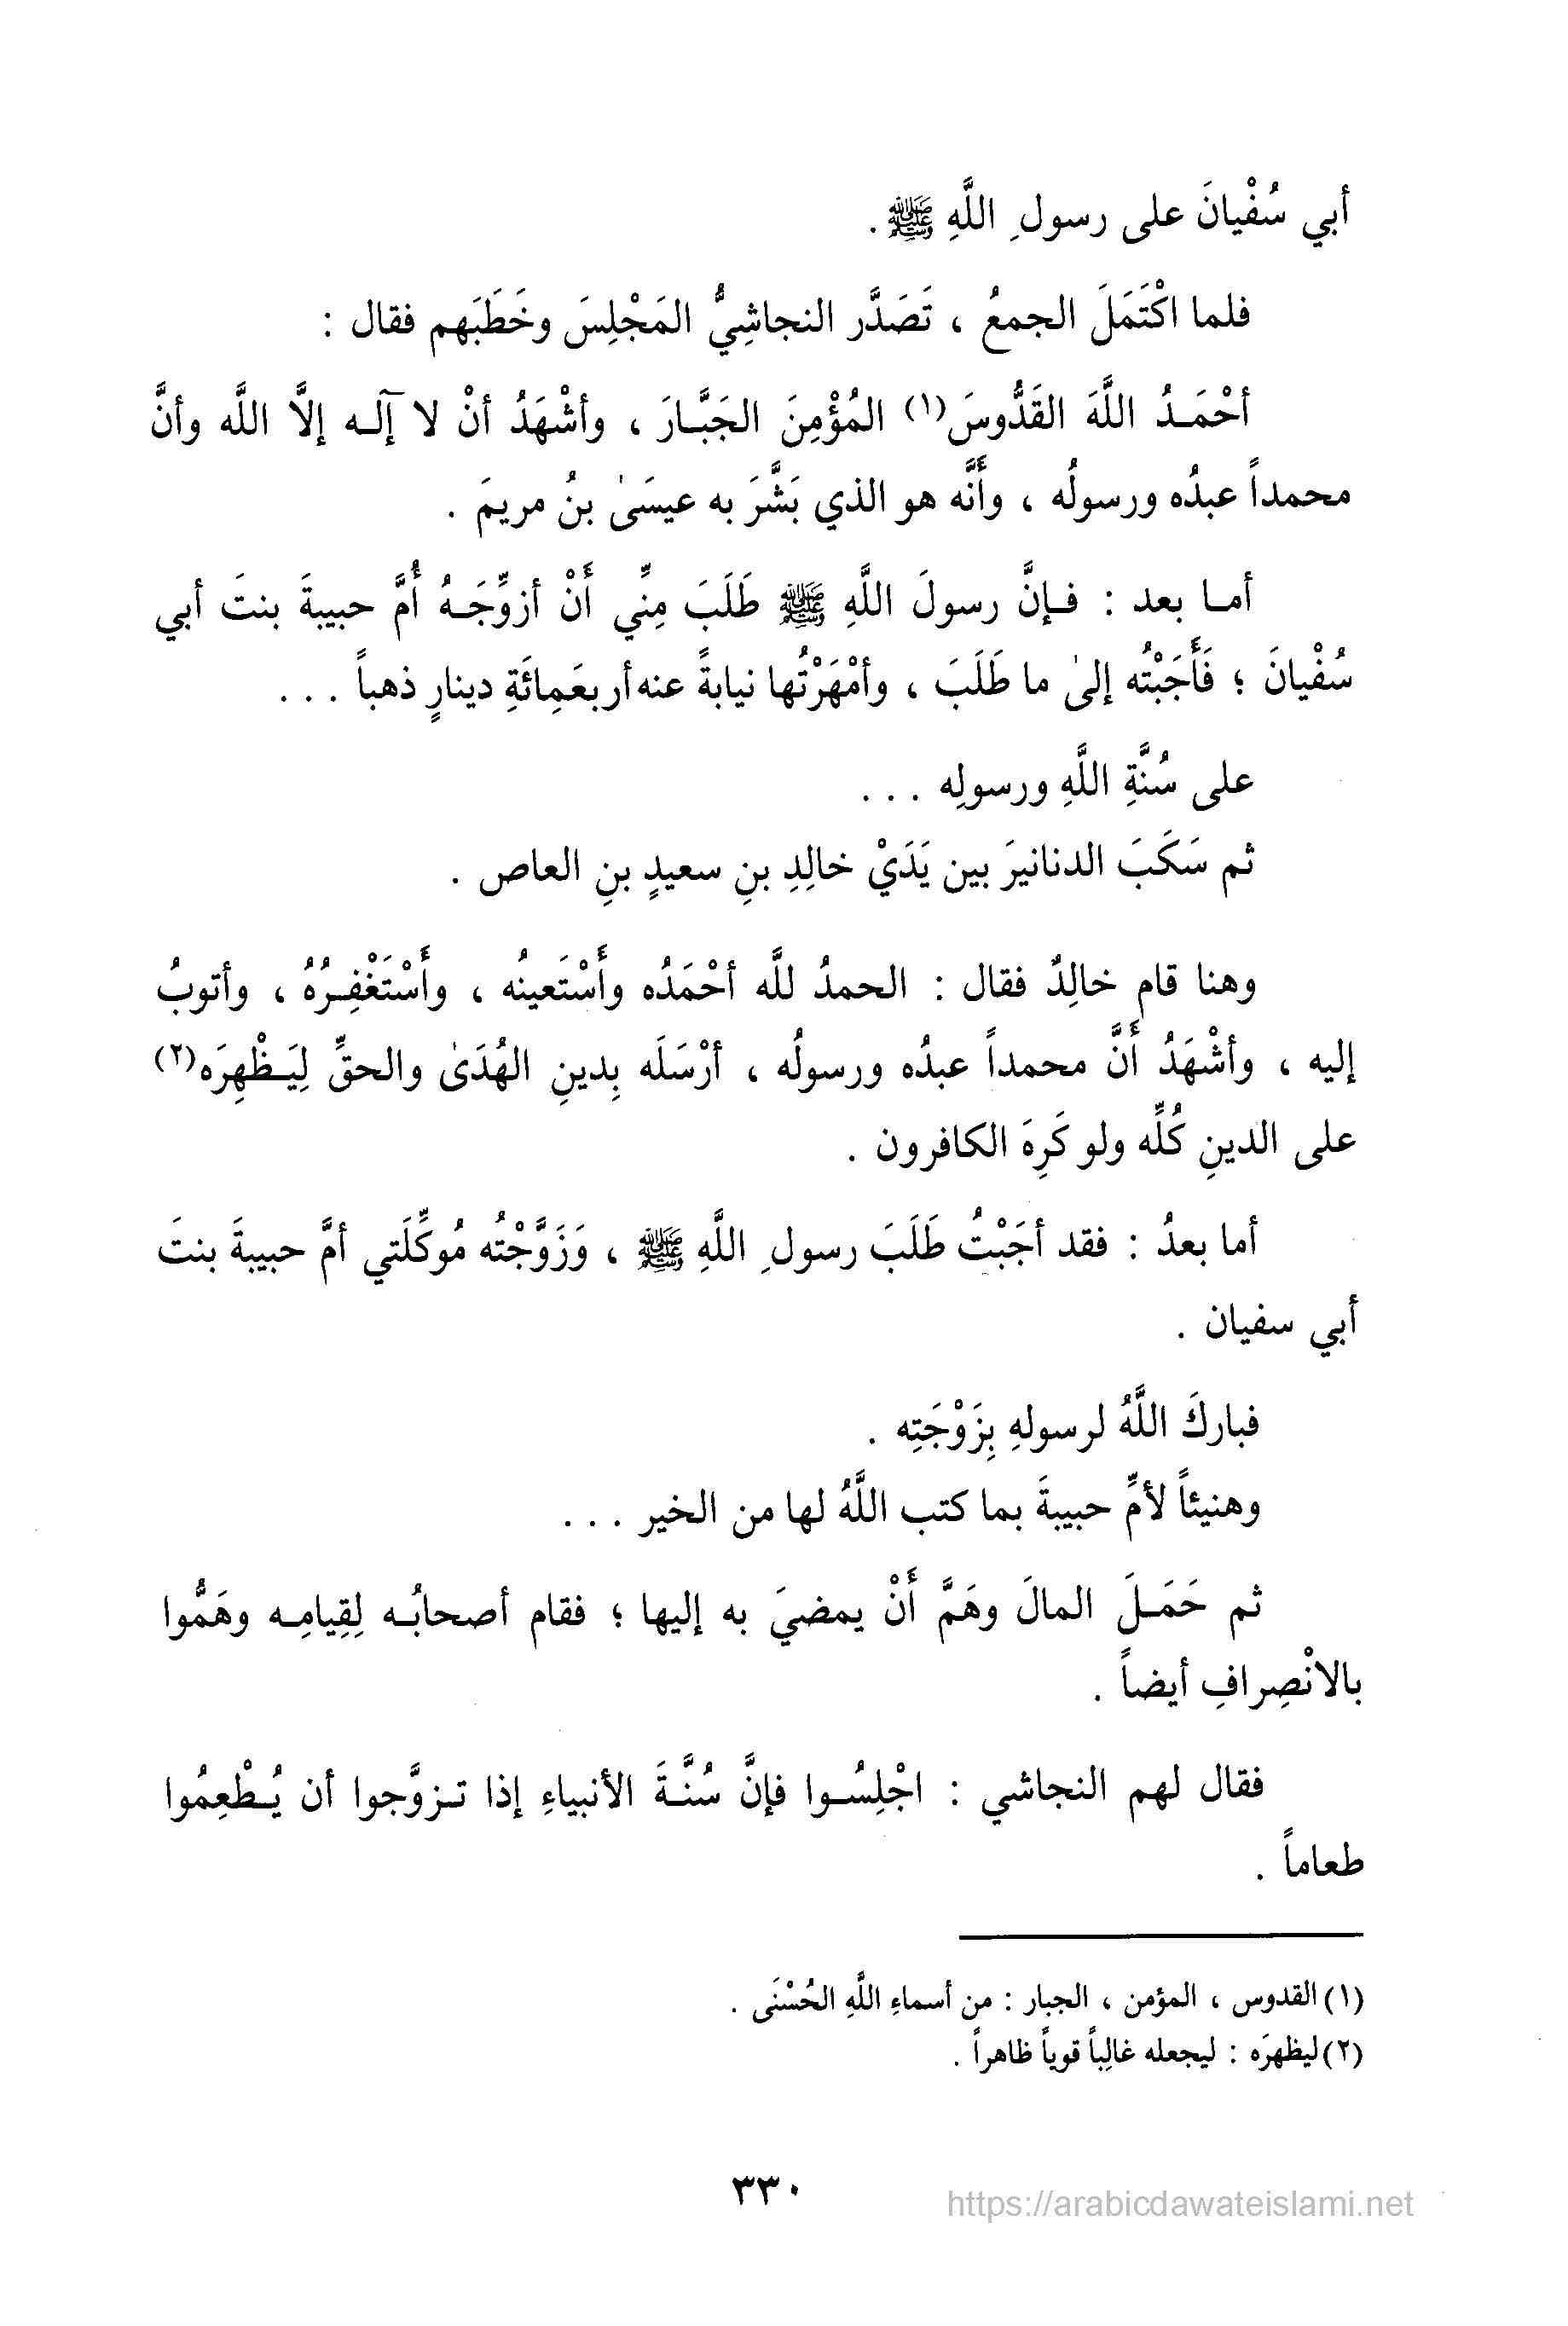 أبي سُفْيانَ على رسولِ اللَّهِ ﷺ .
فلما اكْتَمَلَ الجمعُ ، تَصَدَّر النجاشِيُّ المَجْلِسَ وخَطَبَهم فقال :
أحْمَـدُ اللَّهَ القَدُّوسَ(١) المُؤْمِنَ الجَبَّـارَ ، وأشْهَدُ أنْ لا إآلـه إلَّا اللَّه وأنَّ
محمداً عبدُه ورسولُه ، وأَنَّه هو الذي بَشَّرَ به عيسَىٰ بنُ مريمَ .
أمـا بعد : فـإنَّ رسولَ اللَّهِ ﷺ طَلَبَ مِنِّي أَنْ أزوِّجَـهُ أُمَّ حبيبةَ بنتَ أبي
سُفْيانَ ؛ فَأَجَبْتُه إلىٰ ما طَلَبَ ، وأمْهَرْتُها نيابةً عنه أربعَمِائَةِ دينارٍ ذهباً . . .
على سُنَّةِ اللَّهِ ورسولِه . . .
ثم سَكَبَ الدنانيرَ بين يَدَيْ خالِدِ بنِ سعيدٍ بنِ العاص .
وهنا قام خالِدٌ فقال : الحمدُ للَّه أحْمَدُه وأَسْتَعينُه ، وأَسْتَغْفِـرُهُ ، وأتوبُ
إليه ، وأشْهَدُ أَنَّ محمداً عبدُه ورسولُه ، أرْسَلَه بِدينِ الهُدَىٰ والحقِّ لِيَـظْهِرَه(٢)
على الدينِ كُلِّه ولو كَرِهَ الكافرون .
أما بعدُ : فقد أجَبْتُ طَلَبَ رسولِ اللَّهِ ﷺ ، وَزَوَّجْتُه مُوكِّلَتي أمَّ حبيبةَ بنتَ
أبي سفيان .
فباركَ اللَّهُ لرسولهِ بِزَوْجَتِه .
وهنيئاً لأمِّ حبيبةَ بما كتب اللَّهُ لها من الخير . . .
ثم حَمَـلَ المالَ وهَمَّ أَنْ يمضيَ به إليها ؛ فقام أصحابُـه لِقِيامِـه وهَمُّوا
بالانْصِرافِ أيضاً .
فقال لهم النجاشي : اجْلِسُـوا فإنَّ سُنَّـةَ الأنبياءِ إذا تـزوَّجوا أن يُـطْعِمُوا
طعاماً .
(١) القدوس ، المؤمن ، الجبار : من أسماءِ اللَّهِ الحُسْنَى .
(٢) ليظهرَه : ليجعله غالِباً قوياً ظاهراً .
٣٣٠
https://arabicdawateislami.net